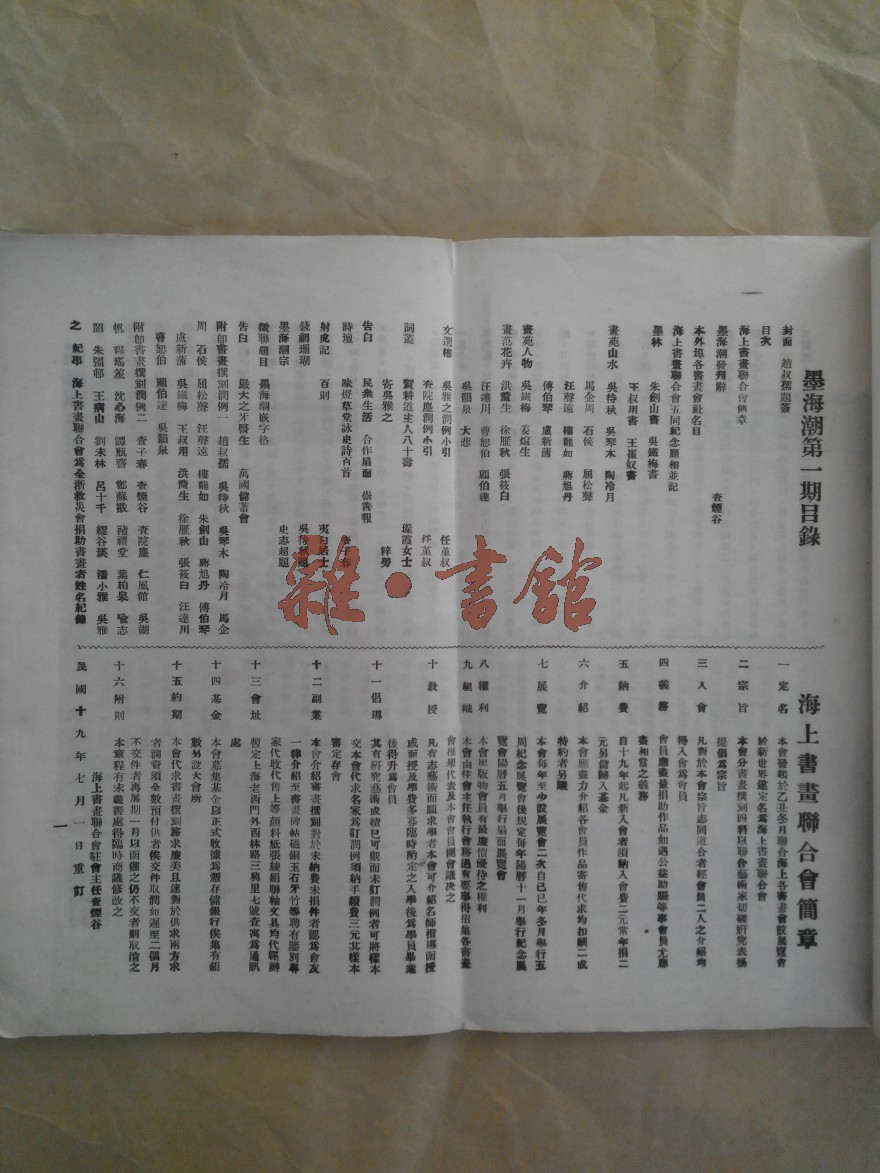 墨海潮第一期目錄
封面 趙叔孺題簽
目次
海上書畫聯合會簡章
墨海潮發刊辭 查煙谷
本外埠各書畫會社名目
海上書畫聯合會五周紀念願相並記
墨林 朱劍山書 吳鐵梅書
王叔用書 王崔奴書
畫苑山水 吳待秋 吳琴木 陶冷月
馬企周 石侯 屈松聲
汪聲遠 樓龍如 蔣旭丹
傅伯琴 盧新蒲
畫苑人物 吳鐵梅 姜煊生
畫范花卉 洪蟄生 徐雁秋 張筱白
汪達川 曹恕伯 顧伯逵
吳韻泉 大悲
文選樓 吳雅之潤例小引 任堇叔
查院塵潤例小引 任堇叔
詞叢 賀耕道主人八十壽 璨霞女士
寄吳雅之 粹勞
告白 民眾生活 合作扇面 崇善報
時壇 味燈草堂詠史詩百首 查子春
射虎記 百則 夷白居士
鐵網珊瑚
墨海潮宗 史志超題
徵聯題目 墨海潮嵌字格
告白 嚴大之牙醫生 萬國儲蓄會
附卽書畫撰刻潤例一 趙叔孺 吳待秋 吳琴木 陶冷月 馬企
周 石侯 屈松聲 汪聲遠 樓龍如 朱劍山 蔣旭丹 傅伯琴
盧新蒲 吳鐵梅 王叔用 洪蟄生 徐雁秋 張筱白 汪達川
曹恕伯 顧伯逵 吳韻泉
附卽書畫撰刻潤例二 查子春 查煙谷 查院塵 仁風館 吳湖
帆 程瑤笙 沈心海 譚瓶齋 鄧蘇戡 褚禮堂 葉柏皋 喻志
韶 朱彊邨 王病山 劉未林 呂十千 繆谷瑛 潘小雅 吳雅
之 紀事 海上書畫聯合會為全浙救災會捐助書畫者姓名紀錄
雜·書館
海上書畫聯合會簡章
一定名 本會發起於乙丑冬月聯合海上各書畫會設展覽會
於新世界遂定名為海上書畫聯合會
二宗旨 本會分書畫撰刻四科以聯合藝術家切磋研究表揚
提倡為宗旨
三入會 凡對於本會宗旨志同道合者經會員二人之介紹均
得入會為會員
四義務 會員應盡量捐助作品如遇公益助賑等事會員尤應
盡相當之義務
五納費 自十九年起凡新入會者須納入會費二元常年捐二
元另儲歸入基金
六介紹 本會應盡力介紹各會員作品寄售代求均扣酬二成
特約者另議
七展覽 本會每年至少設展覽會二次自己巳年冬月舉行五
周紀念展覽會後規定每年陽曆十一月舉行紀念展
覽會陽曆五月舉行扇面展覽會
八權利 本會出版物會員有最廉價優待之權利
九組織 本會由駐會主任執行會務遇有要事得招集各書畫
會推舉代表及本會會員開會議決之
十教授 凡有志藝術而願求學者本會可介紹名師指導函授
或面授及學費多寡臨時酌定之入學後為學員畢業
後得升為會員
十一倡導 其有研究藝術成績已可觀而未訂潤例者可將樣本
交本會代求名家為訂潤例須納手續費三元其樣本
審定存會
十二副業 本會介紹書畫撰刻對於未納費未捐件者認為會友
一律介紹至書畫碑帖磁銅玉石牙竹等聘有廳別專
家代收代售上等顏料紙張綾絹聯軸文具均代經辦
十三會址 暫定上海老西門外西林路三興里七號查寓為通訊
處
十四基金 本會募集基金以正式收據為憑存儲銀行俟集有鉅
數另設大會所
十五約期 本會代求書畫撰刻務求廉美且速對於供求兩方求
者潤資須全數預付供者俟交件取潤如遲至二個月
不交件者再展期一月以函催之仍不交者則取消之
十六附則 本章程有未盡善處得臨時商議修改之
海上書畫聯合會駐會主任查煙谷
民國十九年七月一日重訂